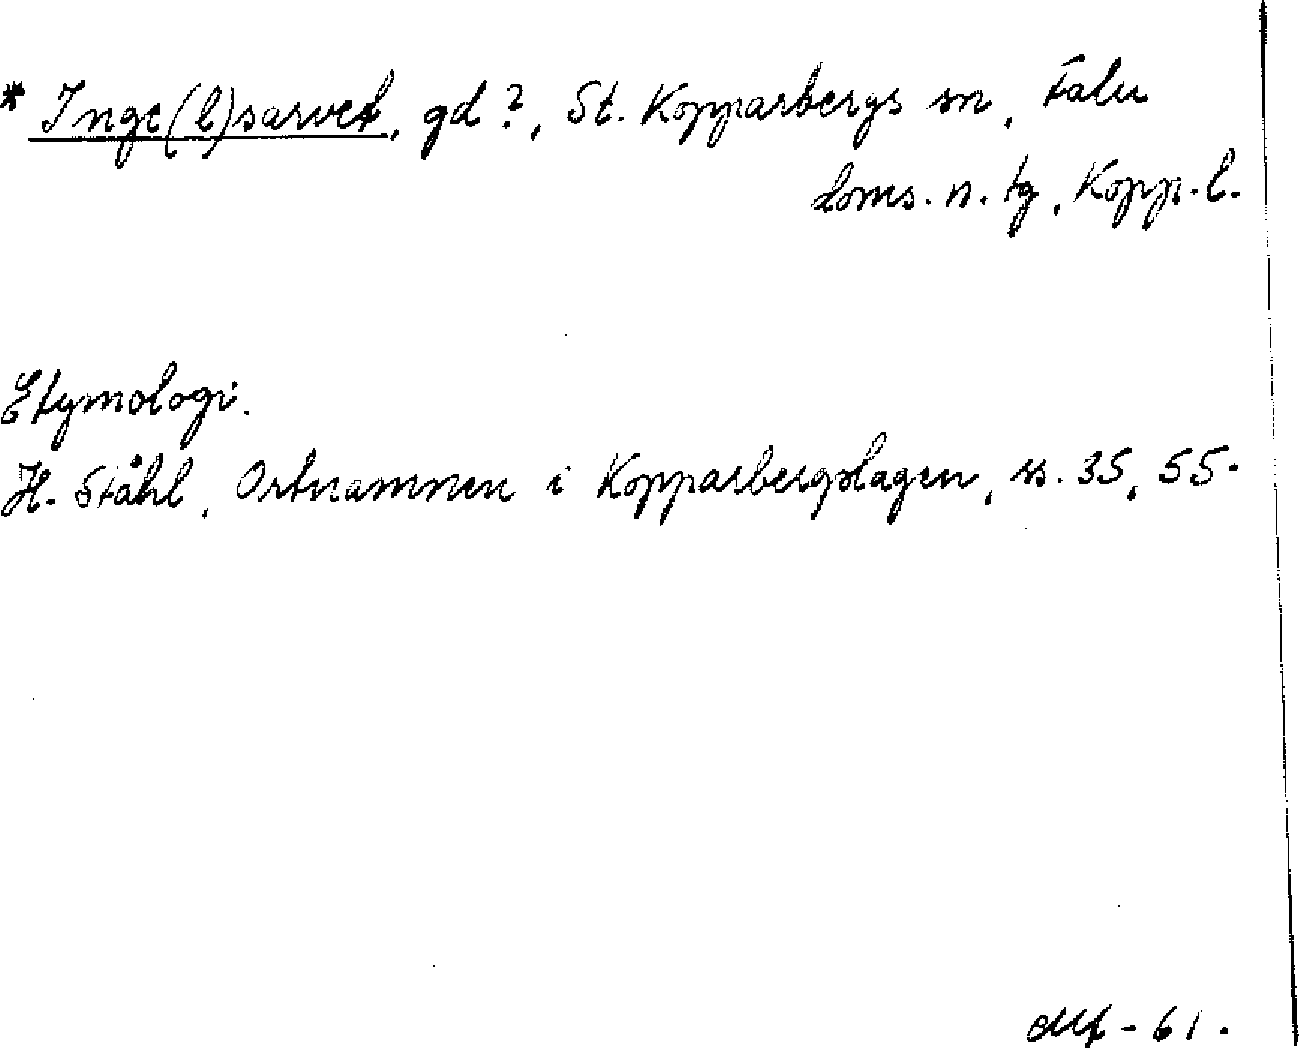 * Inge(l)sarvet, gd?, St. Kopparbergs sn, Falu
doms. n. tg, Kopp. l.
Etymologi.
H. Ståhl, Ortnamnen i Kopparbergslagen, ss. 35, 55.
-61.